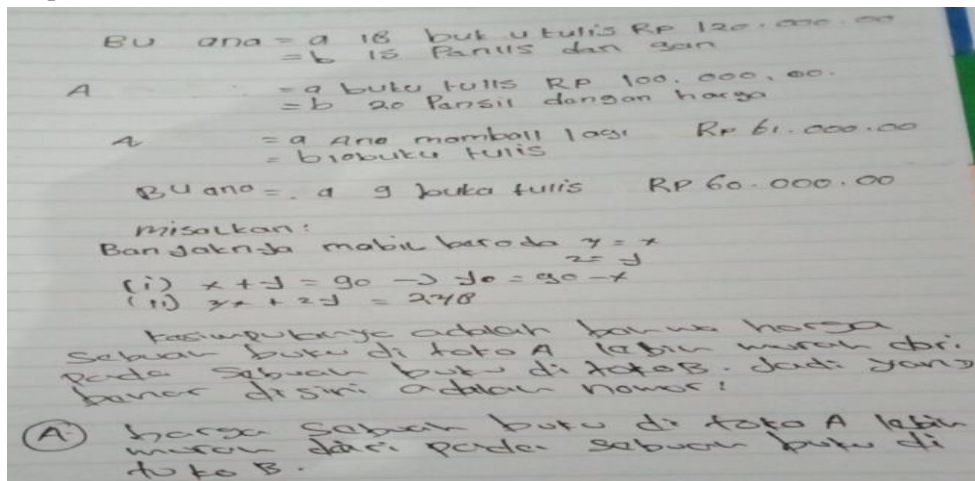 BU ana = a 18 buk u tulis RP 120.000.00
= b 15 Panlls dan gan
A = a buku tulis RP 100.000.00.
= b 20 Pansil dangan harga
A = a Ana mamball lagi RP 61.000.00
= b 10 buku tulis
BU ana = . a 9 buku tulis RP 60.000.00
misalkan:
Banyaknya mobil baroda 4 = x
2 = y
(i) x + y = 90 → yo = 90 - x
(ii) 4x + 2y = 248
kasimpulannya adalah bahwa harga
Sabuah buku di toko A labih murah dari
Pada Sabuah buku di toko B. Jadi yang
banar disini adalah nomor:
A. harga Sabuah buku di toko A labih
murah dari pada sabuah buku di
toko B.